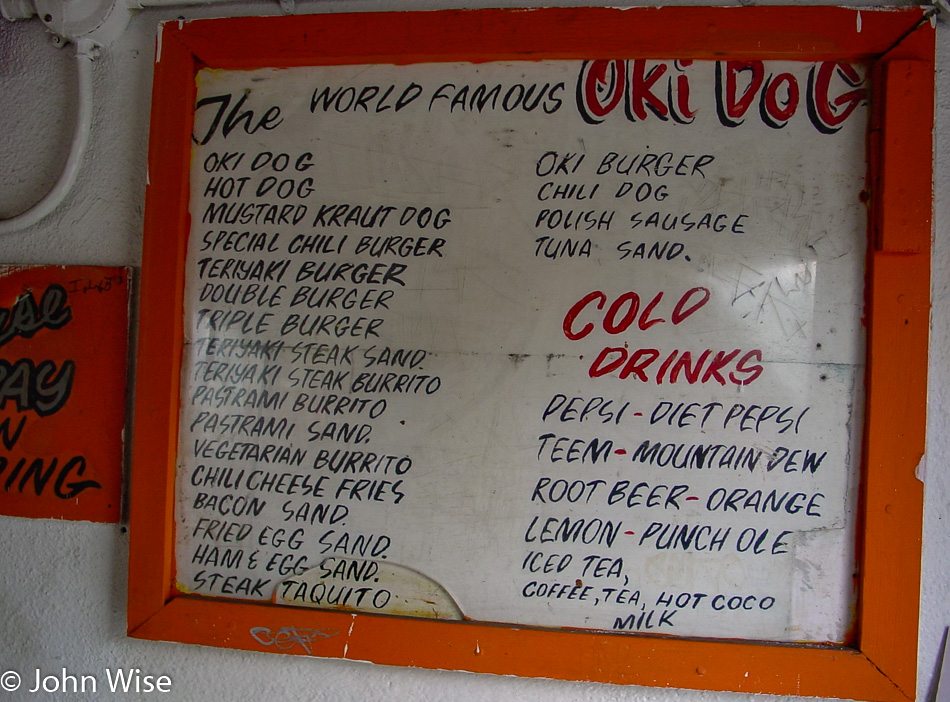 The WORLD FAMOUS OKi DOG
OKI DOG
HOT DOG
MUSTARD KRAUT DOG
SPECIAL CHILI BURGER
TERIYAKI BURGER
DOUBLE BURGER
TRIPLE BURGER
TERIYAKI STEAK SAND.
TERIYAKI STEAK BURRITO
PASTRAMI BURRITO
PASTRAMI SAND.
VEGETARIAN BURRITO
CHILI CHEESE FRIES
BACON SAND.
FRIED EGG SAND.
HAM & EGG SAND.
STEAK TAQUITO
OKI BURGER
CHILI DOG
POLISH SAUSAGE
TUNA SAND.
COLD
DRINKS
PEPSI - DIET PEPSI
TEEM - MOUNTAIN DEW
ROOT BEER - ORANGE
LEMON - PUNCH OLE
ICED TEA,
COFFEE, TEA, HOT COCO
MILK
© John Wise